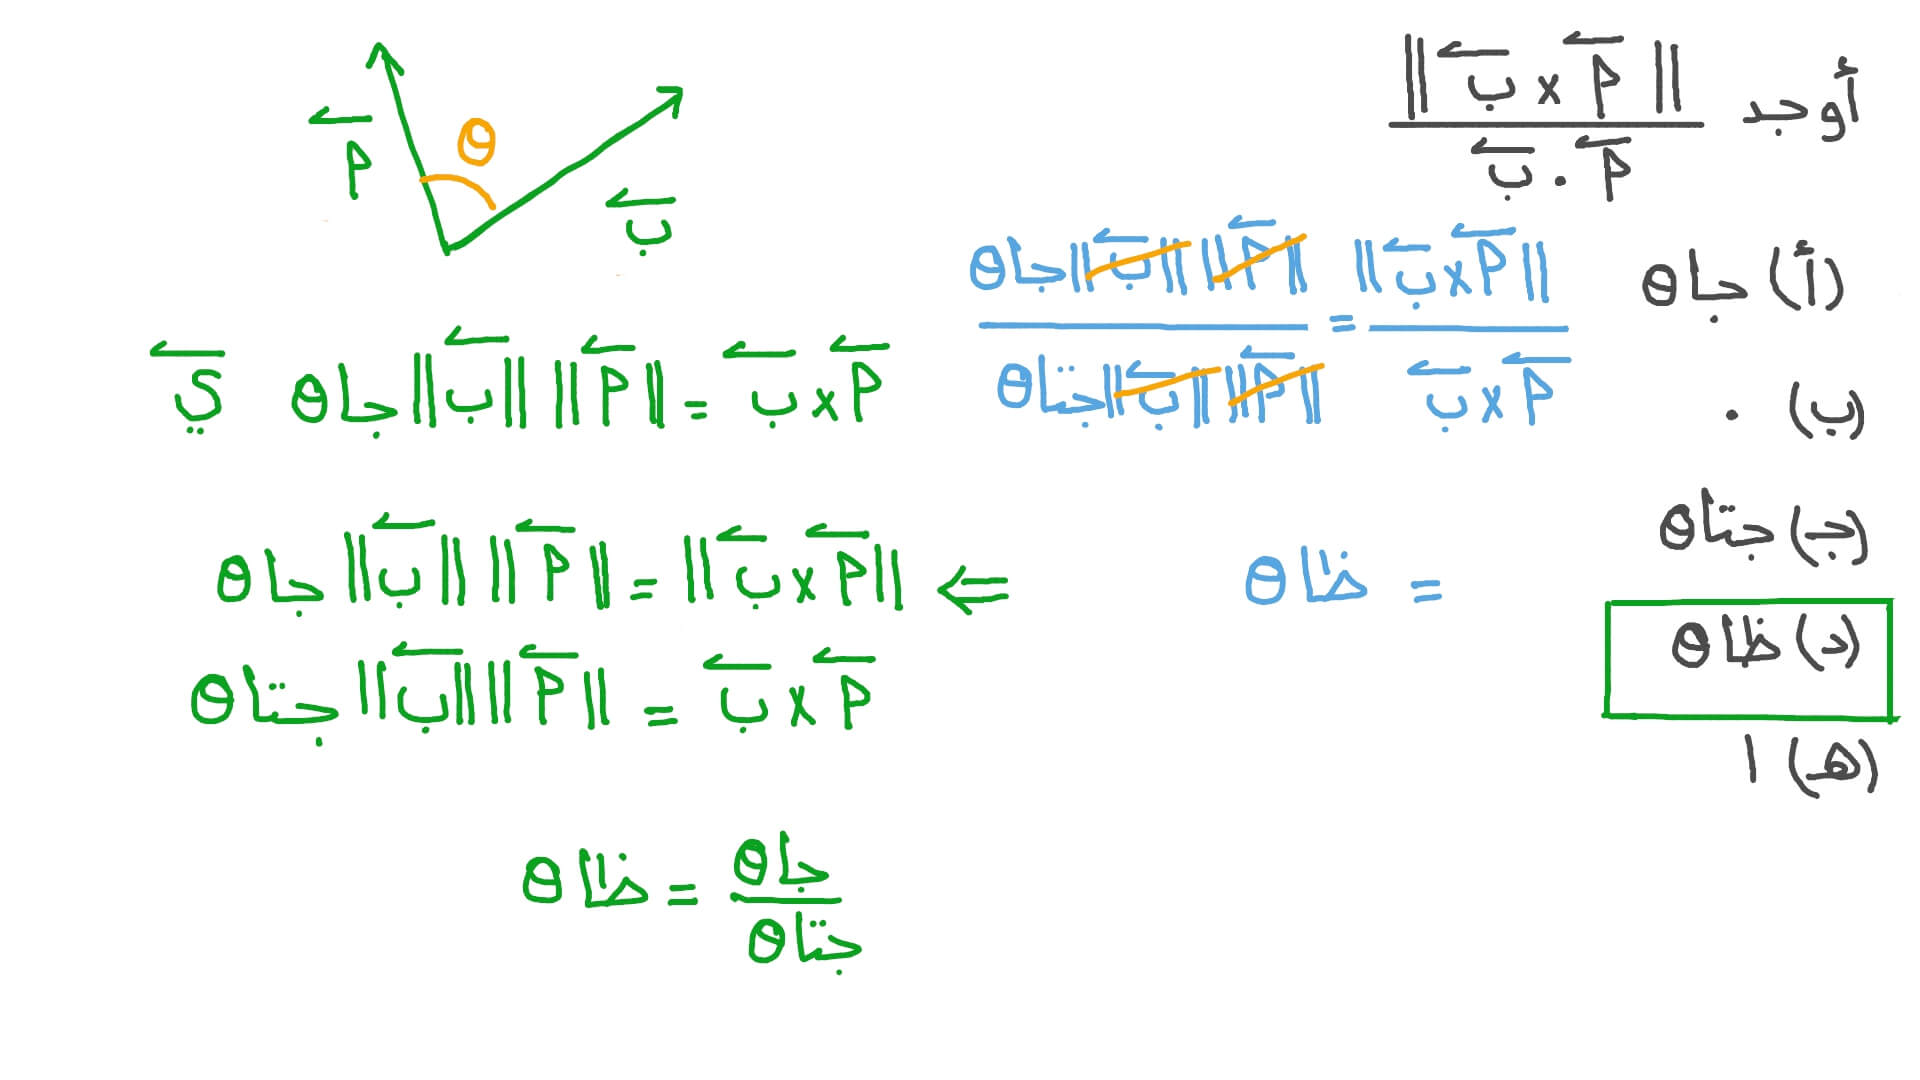 أوجد ‖أ × ب‖ / أ . ب
(أ) جا θ
(ب) ٠
(جـ) جتا θ
(د) ظا θ
(هـ) ١
‖أ × ب‖ / أ × ب = ‖أ‖ ‖ب‖ جا θ / ‖أ‖ ‖ب‖ جتا θ
= ظا θ
أ
θ
ب
أ × ب = ‖أ‖ ‖ب‖ جا θ ي
⇐ ‖أ × ب‖ = ‖أ‖ ‖ب‖ جا θ
أ × ب = ‖أ‖ ‖ب‖ جتا θ
جا θ / جتا θ = ظا θ